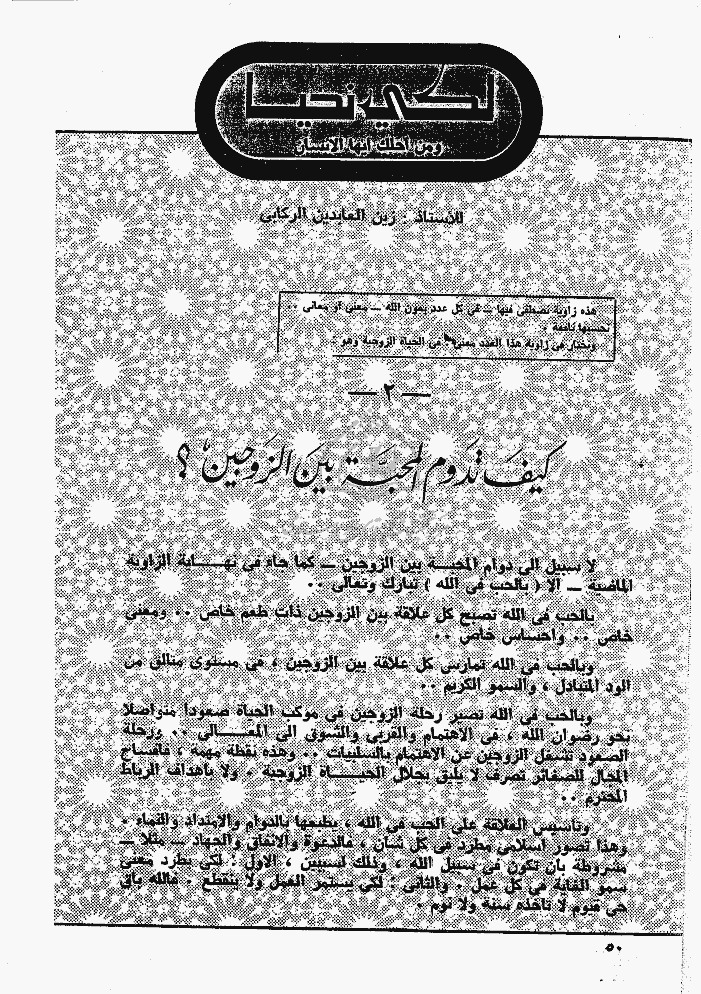 لكي نحيا
ومن أجلك أيها الإنسان
للأستاذ . زين العابدين الركابى
هذه زاوية نصطفى فيها ــ فى كل عدد بعون الله ــ معنى أو معانى ..
نحسبها نافعة .
ونختار فى زاوية هذا العدد معنى فى الحياة الزوجية وهو :
— ٢ —
كيف تدوم المحبة بين الزوجين ؟
لا سبيل الى دوام المحبة بين الزوجين ــ كما جاء فى نهاية الزاوية
الماضية ــ الا ( بالحب فى الله ) تبارك وتعالى ..
بالحب فى الله تصبح كل علاقة بين الزوجين ذات طعم خاص .. ومعنى
خاص .. واحساس خاص ..
وبالحب فى الله تمارس كل علاقة بين الزوجين ، فى مستوى متألق من
الود المتبادل ، والسمو الكريم ..
وبالحب فى الله تصير رحلة الزوجين فى موكب الحياة صعودا متواصلا
نحو رضوان الله ، فى الاهتمام والقربى والشوق الى المعالى .. ورحلة
الصعود تشغل الزوجين عن الاهتمام بالسلبيات .. وهذه نقطة مهمة ، فافساح
المجال للصغائر تصرف لا يليق بجلال الحياة الزوجية ، ولا بأهداف الرباط
المحترم ..
وتأسيس العلاقة على الحب فى الله ، يطبعها بالدوام والامتداد والنماء .
وهذا تصور اسلامى مطرد فى كل شأن ، فالدعوة والانفاق والجهاد ــ مثلا ــ
مشروطة بأن تكون فى سبيل الله ، وذلك لسببين ، الاول : لكى يطرد معنى
سمو الغاية فى كل عمل . والثانى : لكى يستمر العمل ولا ينقطع . فالله باق
حى قيوم لا تأخذه سنة ولا نوم .
٥٠